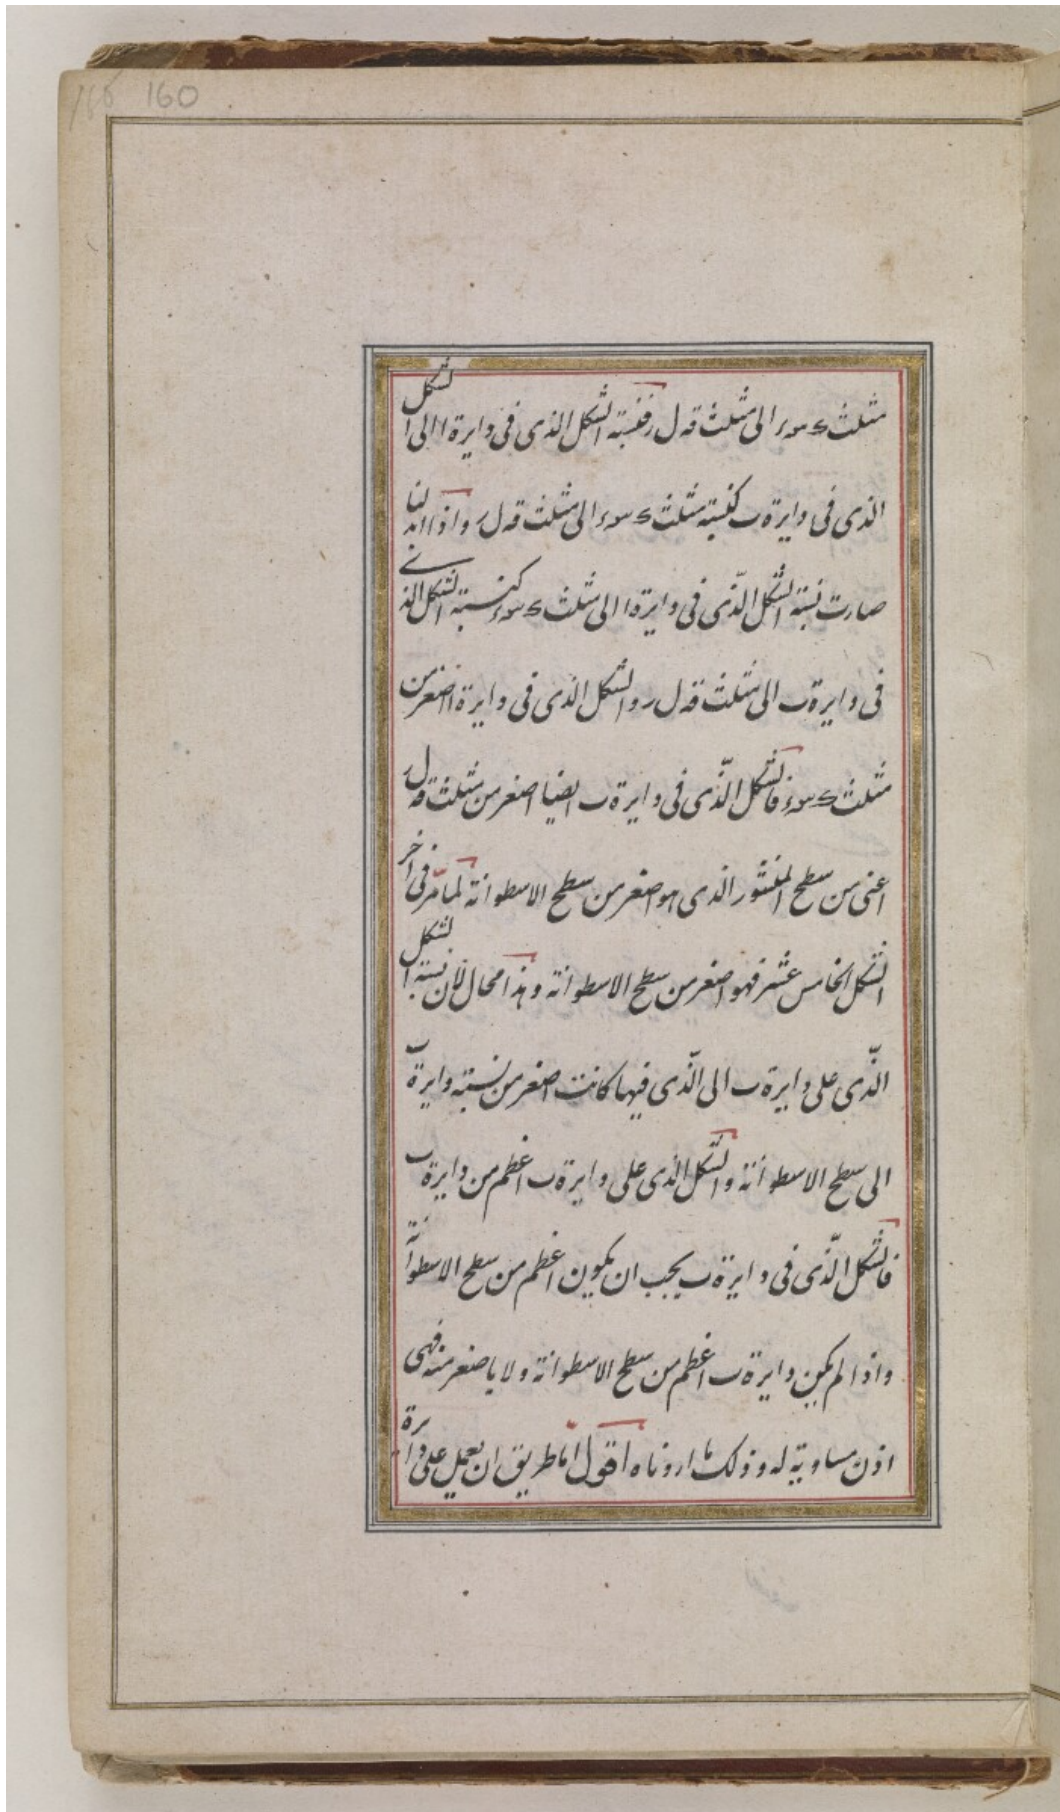 160
مثلث ک سہ ء الى مثلث قہ ل ر فنسبة الشكل الذى فى دايرة ا الى الشكل
الذى فى دايرة ب كنسبة مثلث ک سہ ء الى مثلث قہ ل ر واذا ابدلنا
صارت نسبة الشكل الذّى فى دايرة ا الى مثلث ک سہ ء كنسبة الشكل الذى
فى دايرة ب الى مثلث قہ ل ر والشكل الذى فى دايرة ا اصغر من
مثلث ک سہ ء فالشكل الذّى فى دايرة ب ايضا اصغر من مثلث قہ ل ر
اعنى من سطح المنشور الذى هو اصغر من سطح الاسطوانة لما مّر فى اخر
الشكل الخامس عشر فهو اصغر من سطح الاسطوانة وهذا محال لان نسبة الشكل
الذّى على دايرة ب الى الذّى فيها كانت اصغر من نسبة دايرة ب
الى سطح الاسطوانة والشكل الذى على دايرة ب اعظم من دايرة ب
فالشكل الذّى فى دايرة ب يجب ان يكون اعظم من سطح الاسطوانة
واذا لم يكن دايرة ب اعظم من سطح الاسطوانة ولا باصغر منه فهى
اذن مساوية له وذلك ما اردناه اقول امّا طريق ان يعمل على دايرة